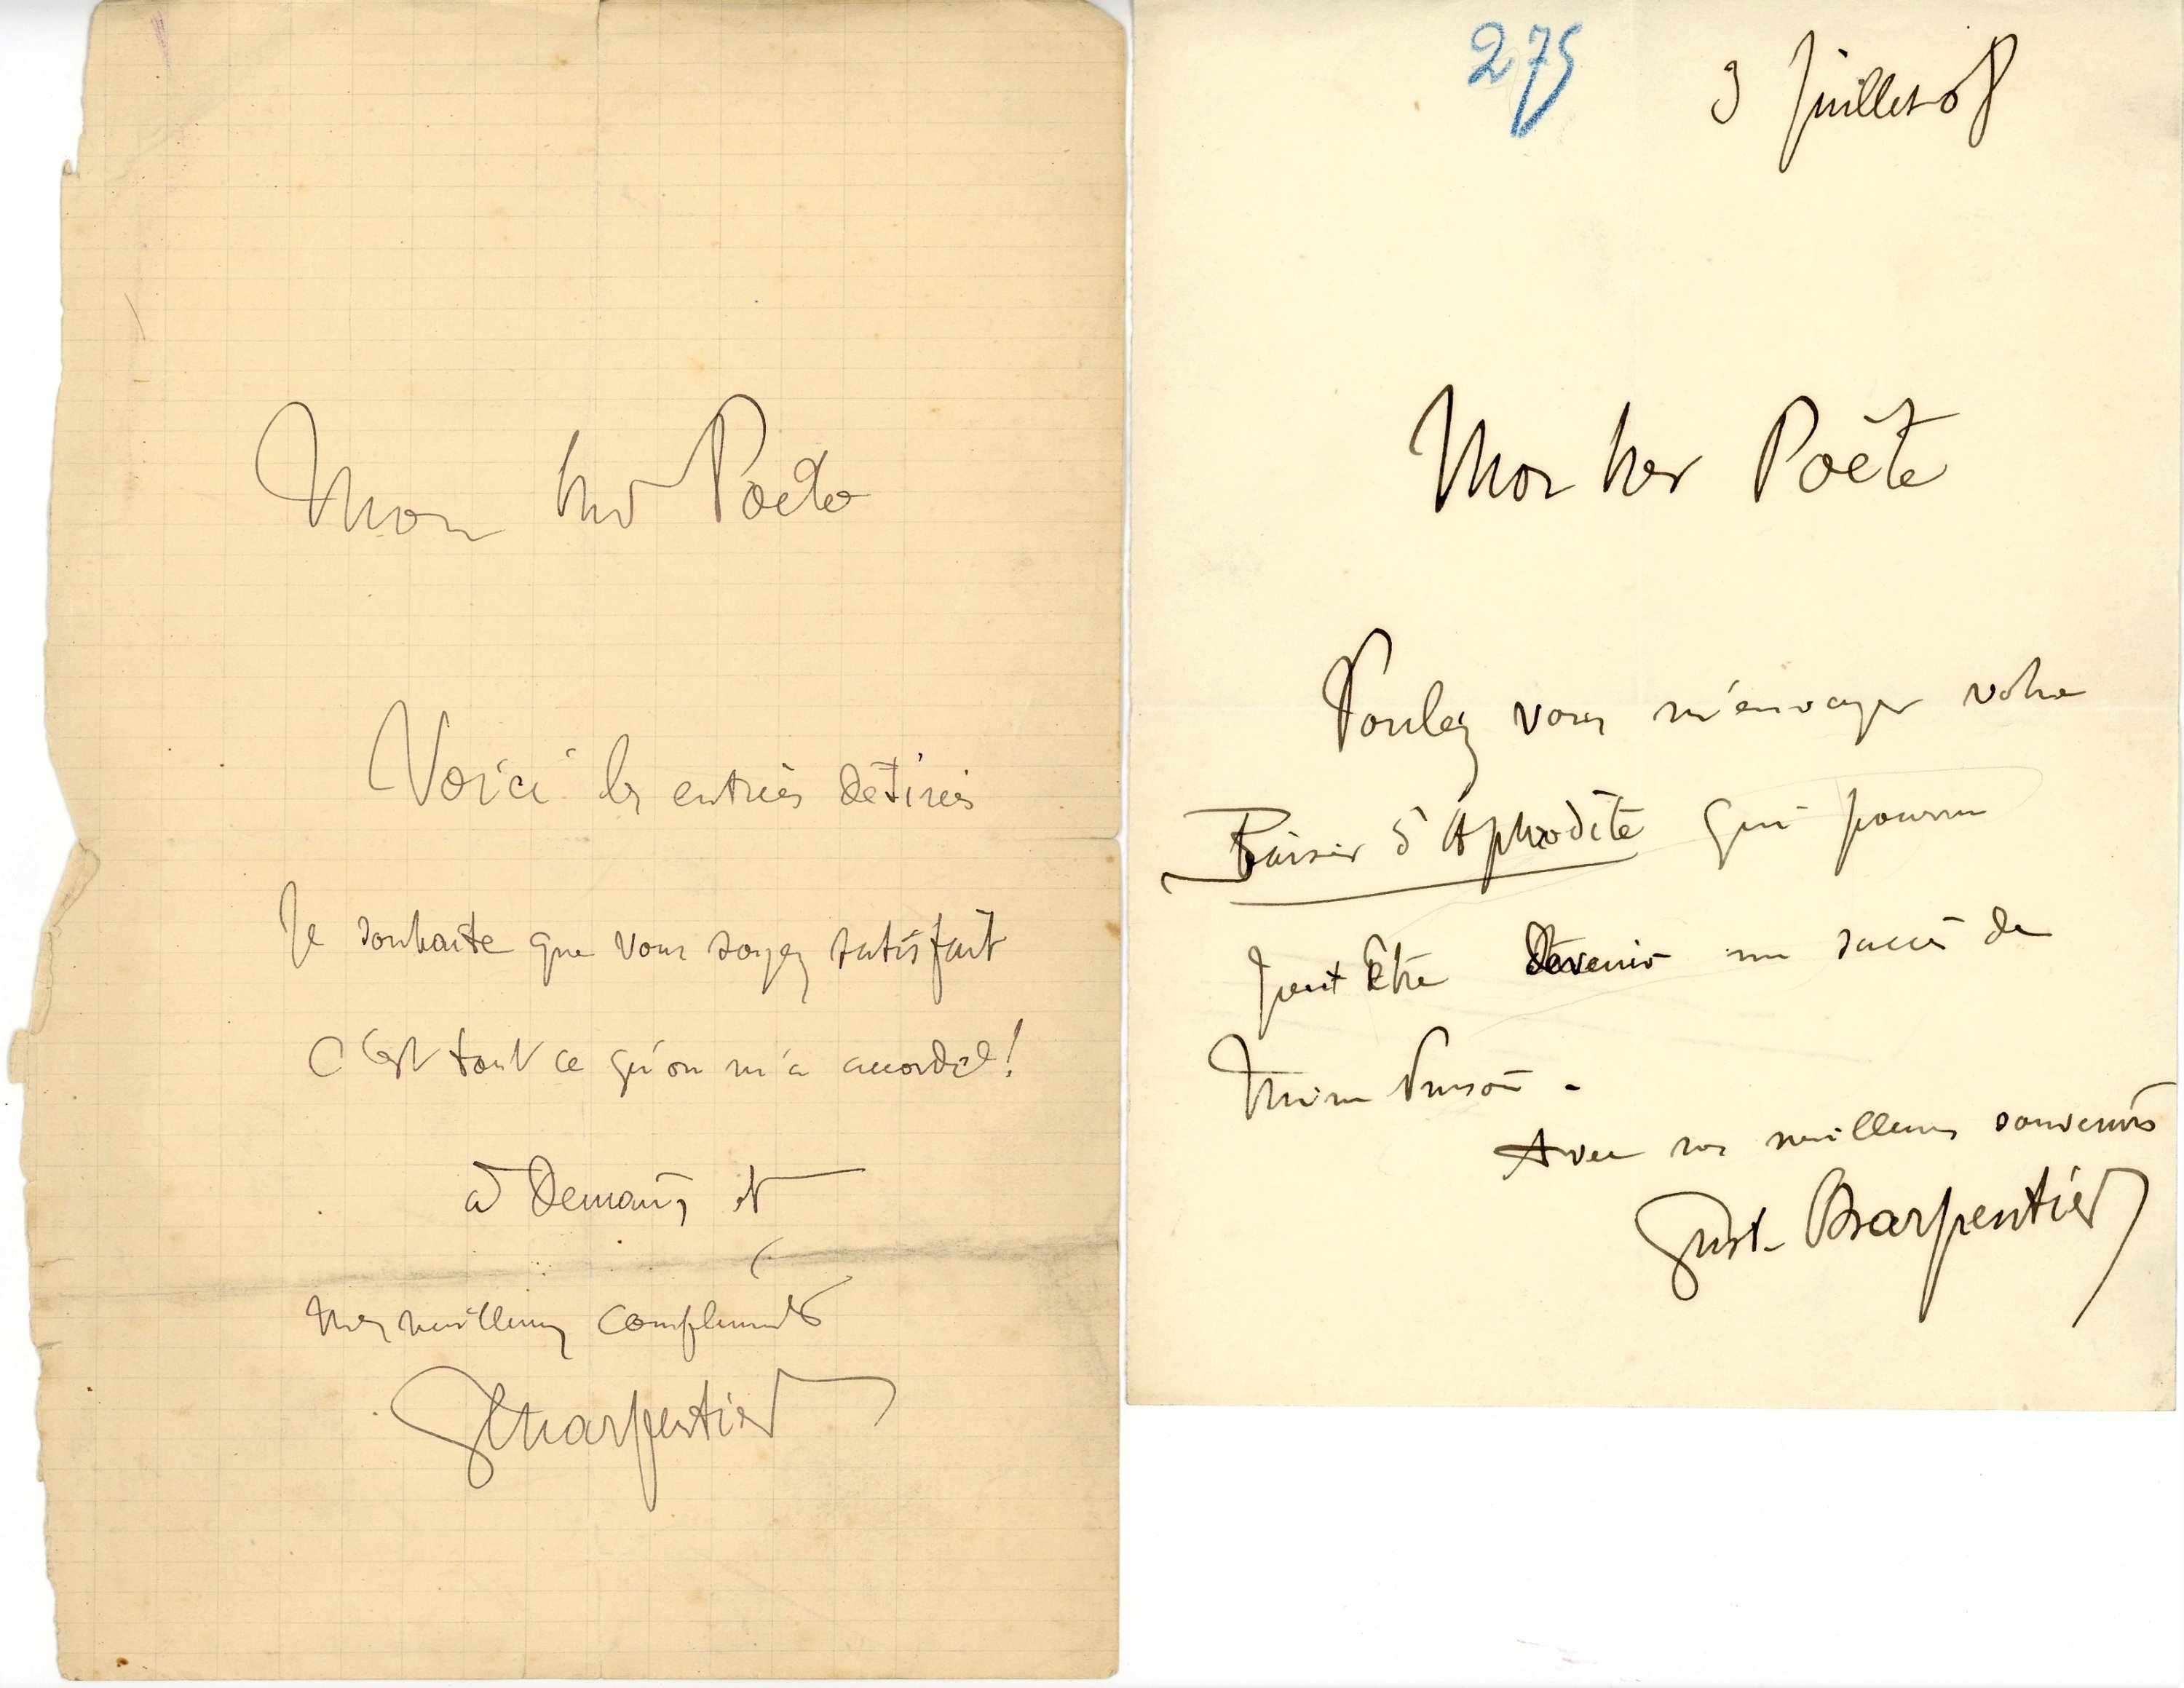 Mon cher Poète
Voici les entrées désirées
Je souhaite que vous soyez satisfait
C'est tout ce qu'on m'a accordé!
à Demain, et
mes meilleurs compliments
GCharpentier
275
3 Juillet 08
Mon cher Poète
Voulez vous m'envoyer votre
Baiser d'Aphrodite qui pourra
peut être devenir un succès de
Mimi Pinson -
Avec mes meilleurs souvenirs
Gust. Charpentier